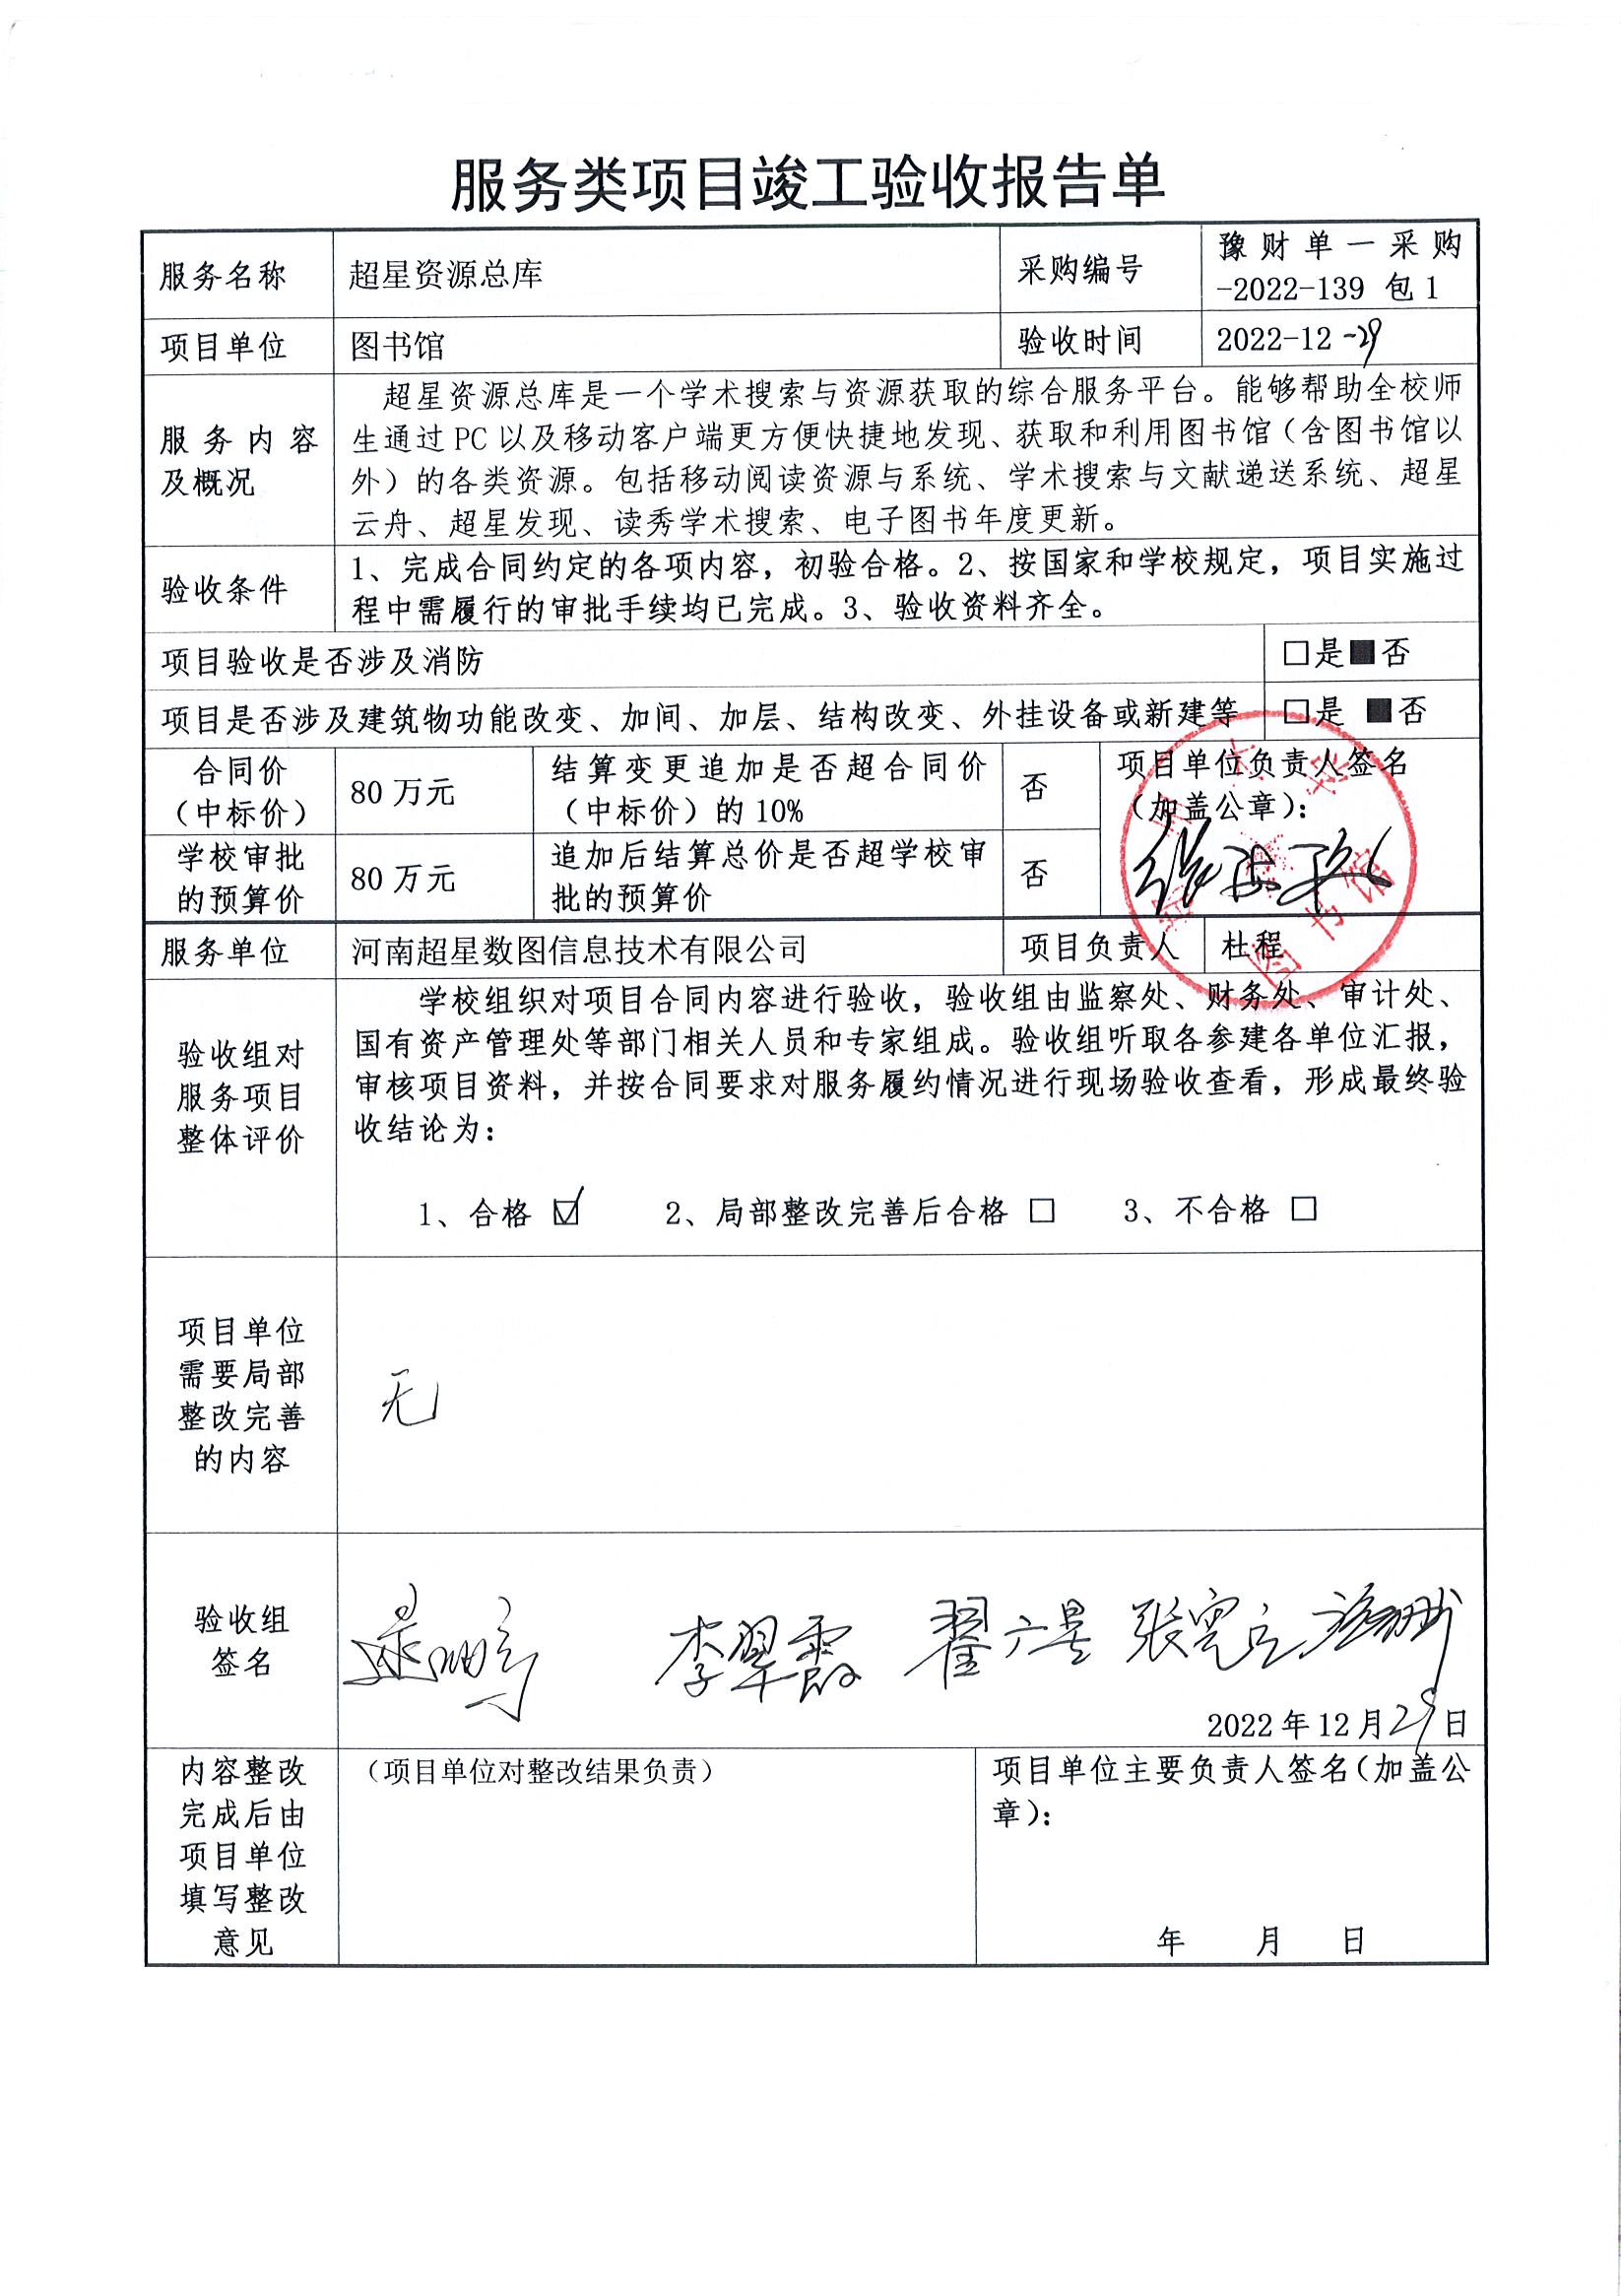 服务类项目竣工验收报告单
服务名称
超星资源总库
采购编号
豫财单一采购
-2022-139 包1
项目单位
图书馆
验收时间
2022-12-29
服务内容
及概况
超星资源总库是一个学术搜索与资源获取的综合服务平台。能够帮助全校师
生通过PC以及移动客户端更方便快捷地发现、获取和利用图书馆（含图书馆以
外）的各类资源。包括移动阅读资源与系统、学术搜索与文献递送系统、超星
云舟、超星发现、读秀学术搜索、电子图书年度更新。
验收条件
1、完成合同约定的各项内容，初验合格。2、按国家和学校规定，项目实施过
程中需履行的审批手续均已完成。3、验收资料齐全。
项目验收是否涉及消防
□是■否
项目是否涉及建筑物功能改变、加间、加层、结构改变、外挂设备或新建等
□是 ■否
合同价
（中标价）
80万元
结算变更追加是否超合同价
（中标价）的10%
否
项目单位负责人签名
（加盖公章）：
学校审批
的预算价
80万元
追加后结算总价是否超学校审
批的预算价
否
图书馆
服务单位
河南超星数图信息技术有限公司
项目负责人
杜程
验收组对
服务项目
整体评价
学校组织对项目合同内容进行验收，验收组由监察处、财务处、审计处、
国有资产管理处等部门相关人员和专家组成。验收组听取各参建各单位汇报，
审核项目资料，并按合同要求对服务履约情况进行现场验收查看，形成最终验
收结论为：
1、合格 ☑ 2、局部整改完善后合格 □ 3、不合格 □
项目单位
需要局部
整改完善
的内容
无
验收组
签名
李翠霞
2022年12月29日
内容整改
完成后由
项目单位
填写整改
意见
（项目单位对整改结果负责）
项目单位主要负责人签名（加盖公
章）：
年 月 日